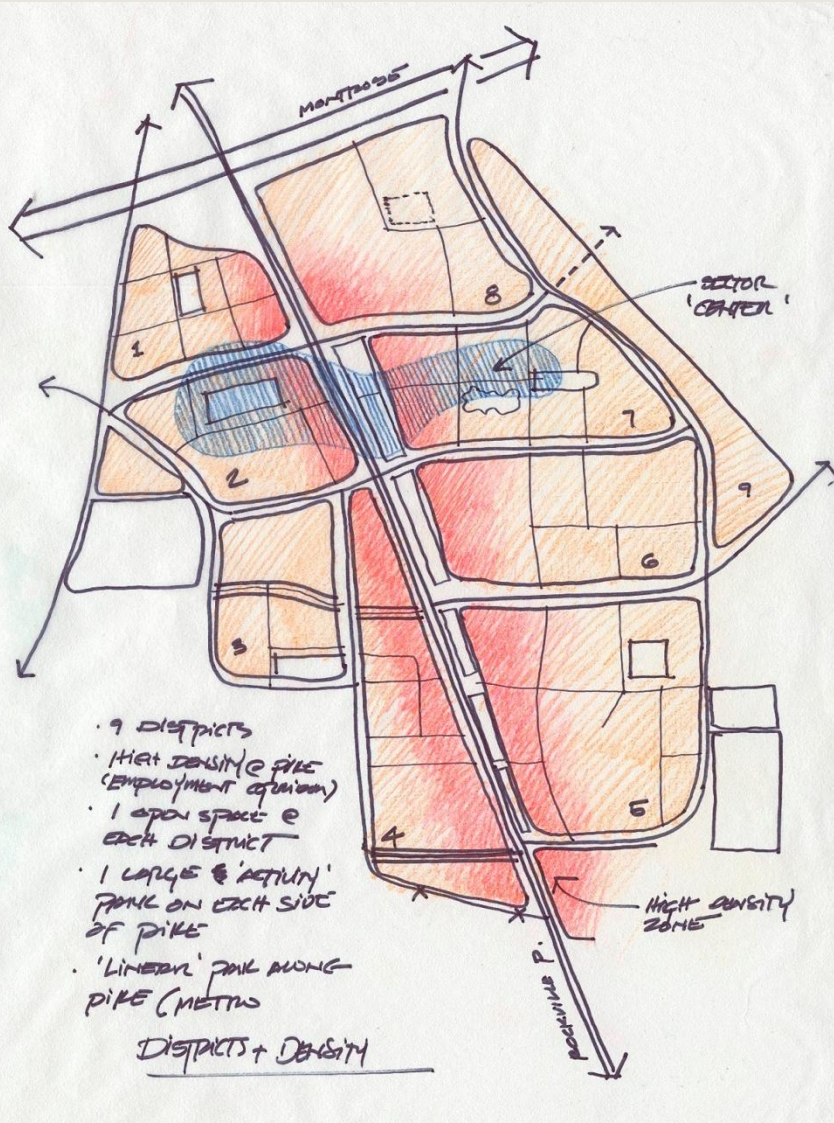 MONTROSE
8
SECTOR
'CENTER'
1
7
2
9
6
3
· 9 DISTRICTS
· HIGH DENSITY @ PIKE
(EMPLOYMENT CORRIDOR)
· 1 OPEN SPACE @
EACH DISTRICT
· 1 LARGE & 'ACTIVITY'
PARK ON EACH SIDE
OF PIKE
· 'LINEAR' PARK ALONG
PIKE (METRO
4
5
HIGH DENSITY
ZONE
ROCKVILLE P.
DISTRICTS + DENSITY